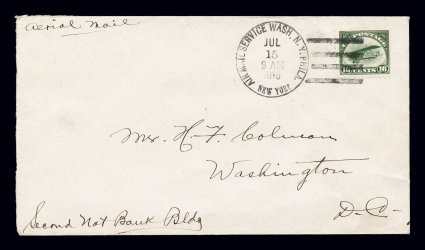 Aerial Mail
AIR MAIL SERVICE WASH. N.Y. PHILA.
JUL
15
9 AM
NEW YORK
U.S. POSTAGE
16 CENTS 16
Mr. H. F. Colman
Washington
D. C.
Second Nat Bank Bldg